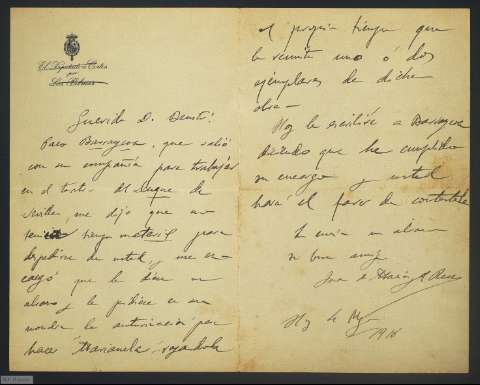 El Diputado a Cortes
por
Las Palmas
Querido D. Benito:
Paco Barraycoa, que salió
con su compañía para trabajar
en el teatro del Duque de
Sevilla, me dijo que no
tenía tiempo material para
despedirse de usted, y me en-
cargó que le diera un
abrazo y le pidiera en su
nombre la autorización para
hacer "Marianela" rogándole
al propio tiempo que
le remita uno ó dos
ejemplares de dicha
obra—
Hoy le escribiré a Barraycoa
diciendo que he cumplido
su encargo y usted
hará el favor de contestarle
Le envía un abrazo
su buen amigo
Hoy 1º My
1918